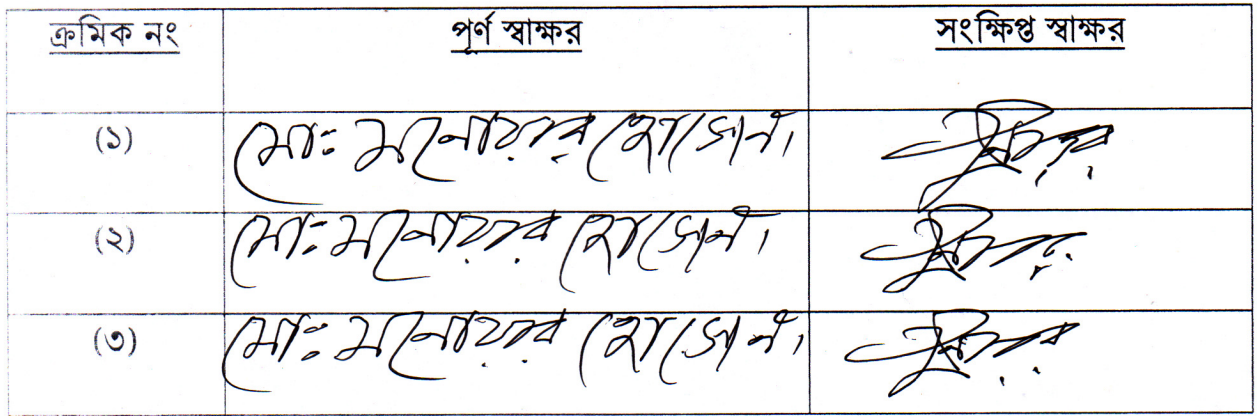 ক্রমিক নং পূর্ণ স্বাক্ষর সংক্ষিপ্ত স্বাক্ষর
(১) মোঃ মনোয়ার হোসেন।
(২) মোঃ মনোয়ার হোসেন।
(৩) মোঃ মনোয়ার হোসেন।